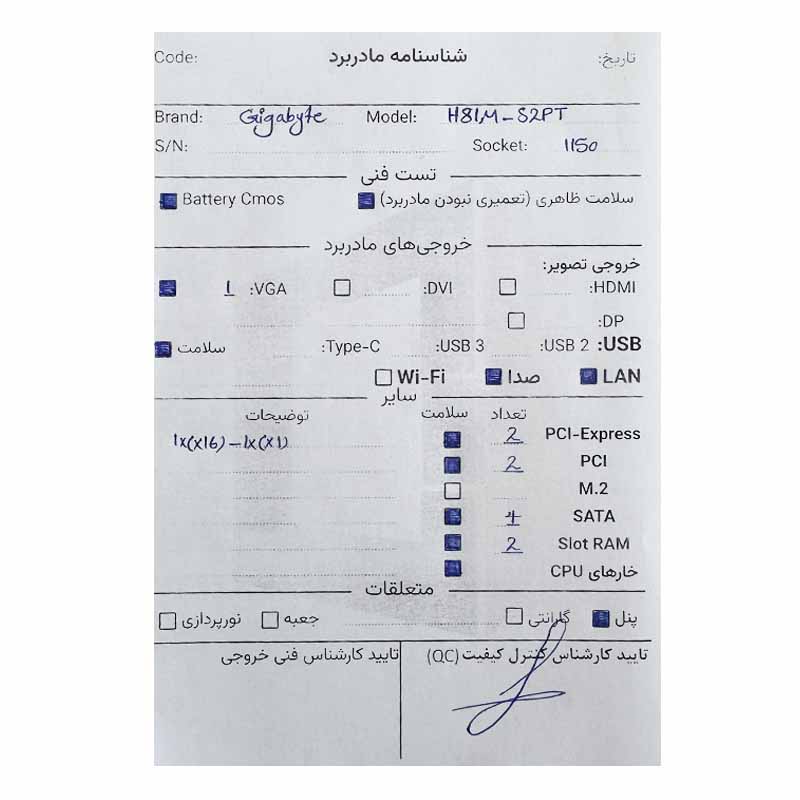 تاریخ: شناسنامه مادربرد Code:
Brand: Gigabyte Model: H81M-S2PT
S/N: Socket: 1150
تست فنی
سلامت ظاهری (تعمیری نبودن مادربرد) Battery Cmos
خروجی‌های مادربرد
خروجی تصویر:
HDMI: DVI: VGA: 1
DP:
USB: USB 2: USB 3: Type-C: سلامت
LAN صدا Wi-Fi
سایر
تعداد سلامت توضیحات
PCI-Express 2 1x(x16) - 1x(x1)
PCI 2
M.2
SATA 4
Slot RAM 2
خارهای CPU
متعلقات
پنل گارانتی جعبه نورپردازی
تایید کارشناس کنترل کیفیت (QC) تایید کارشناس فنی خروجی